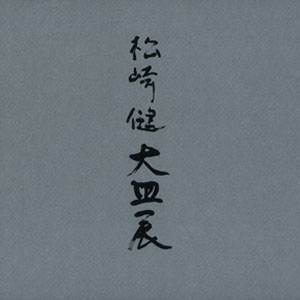 松崎健大皿展